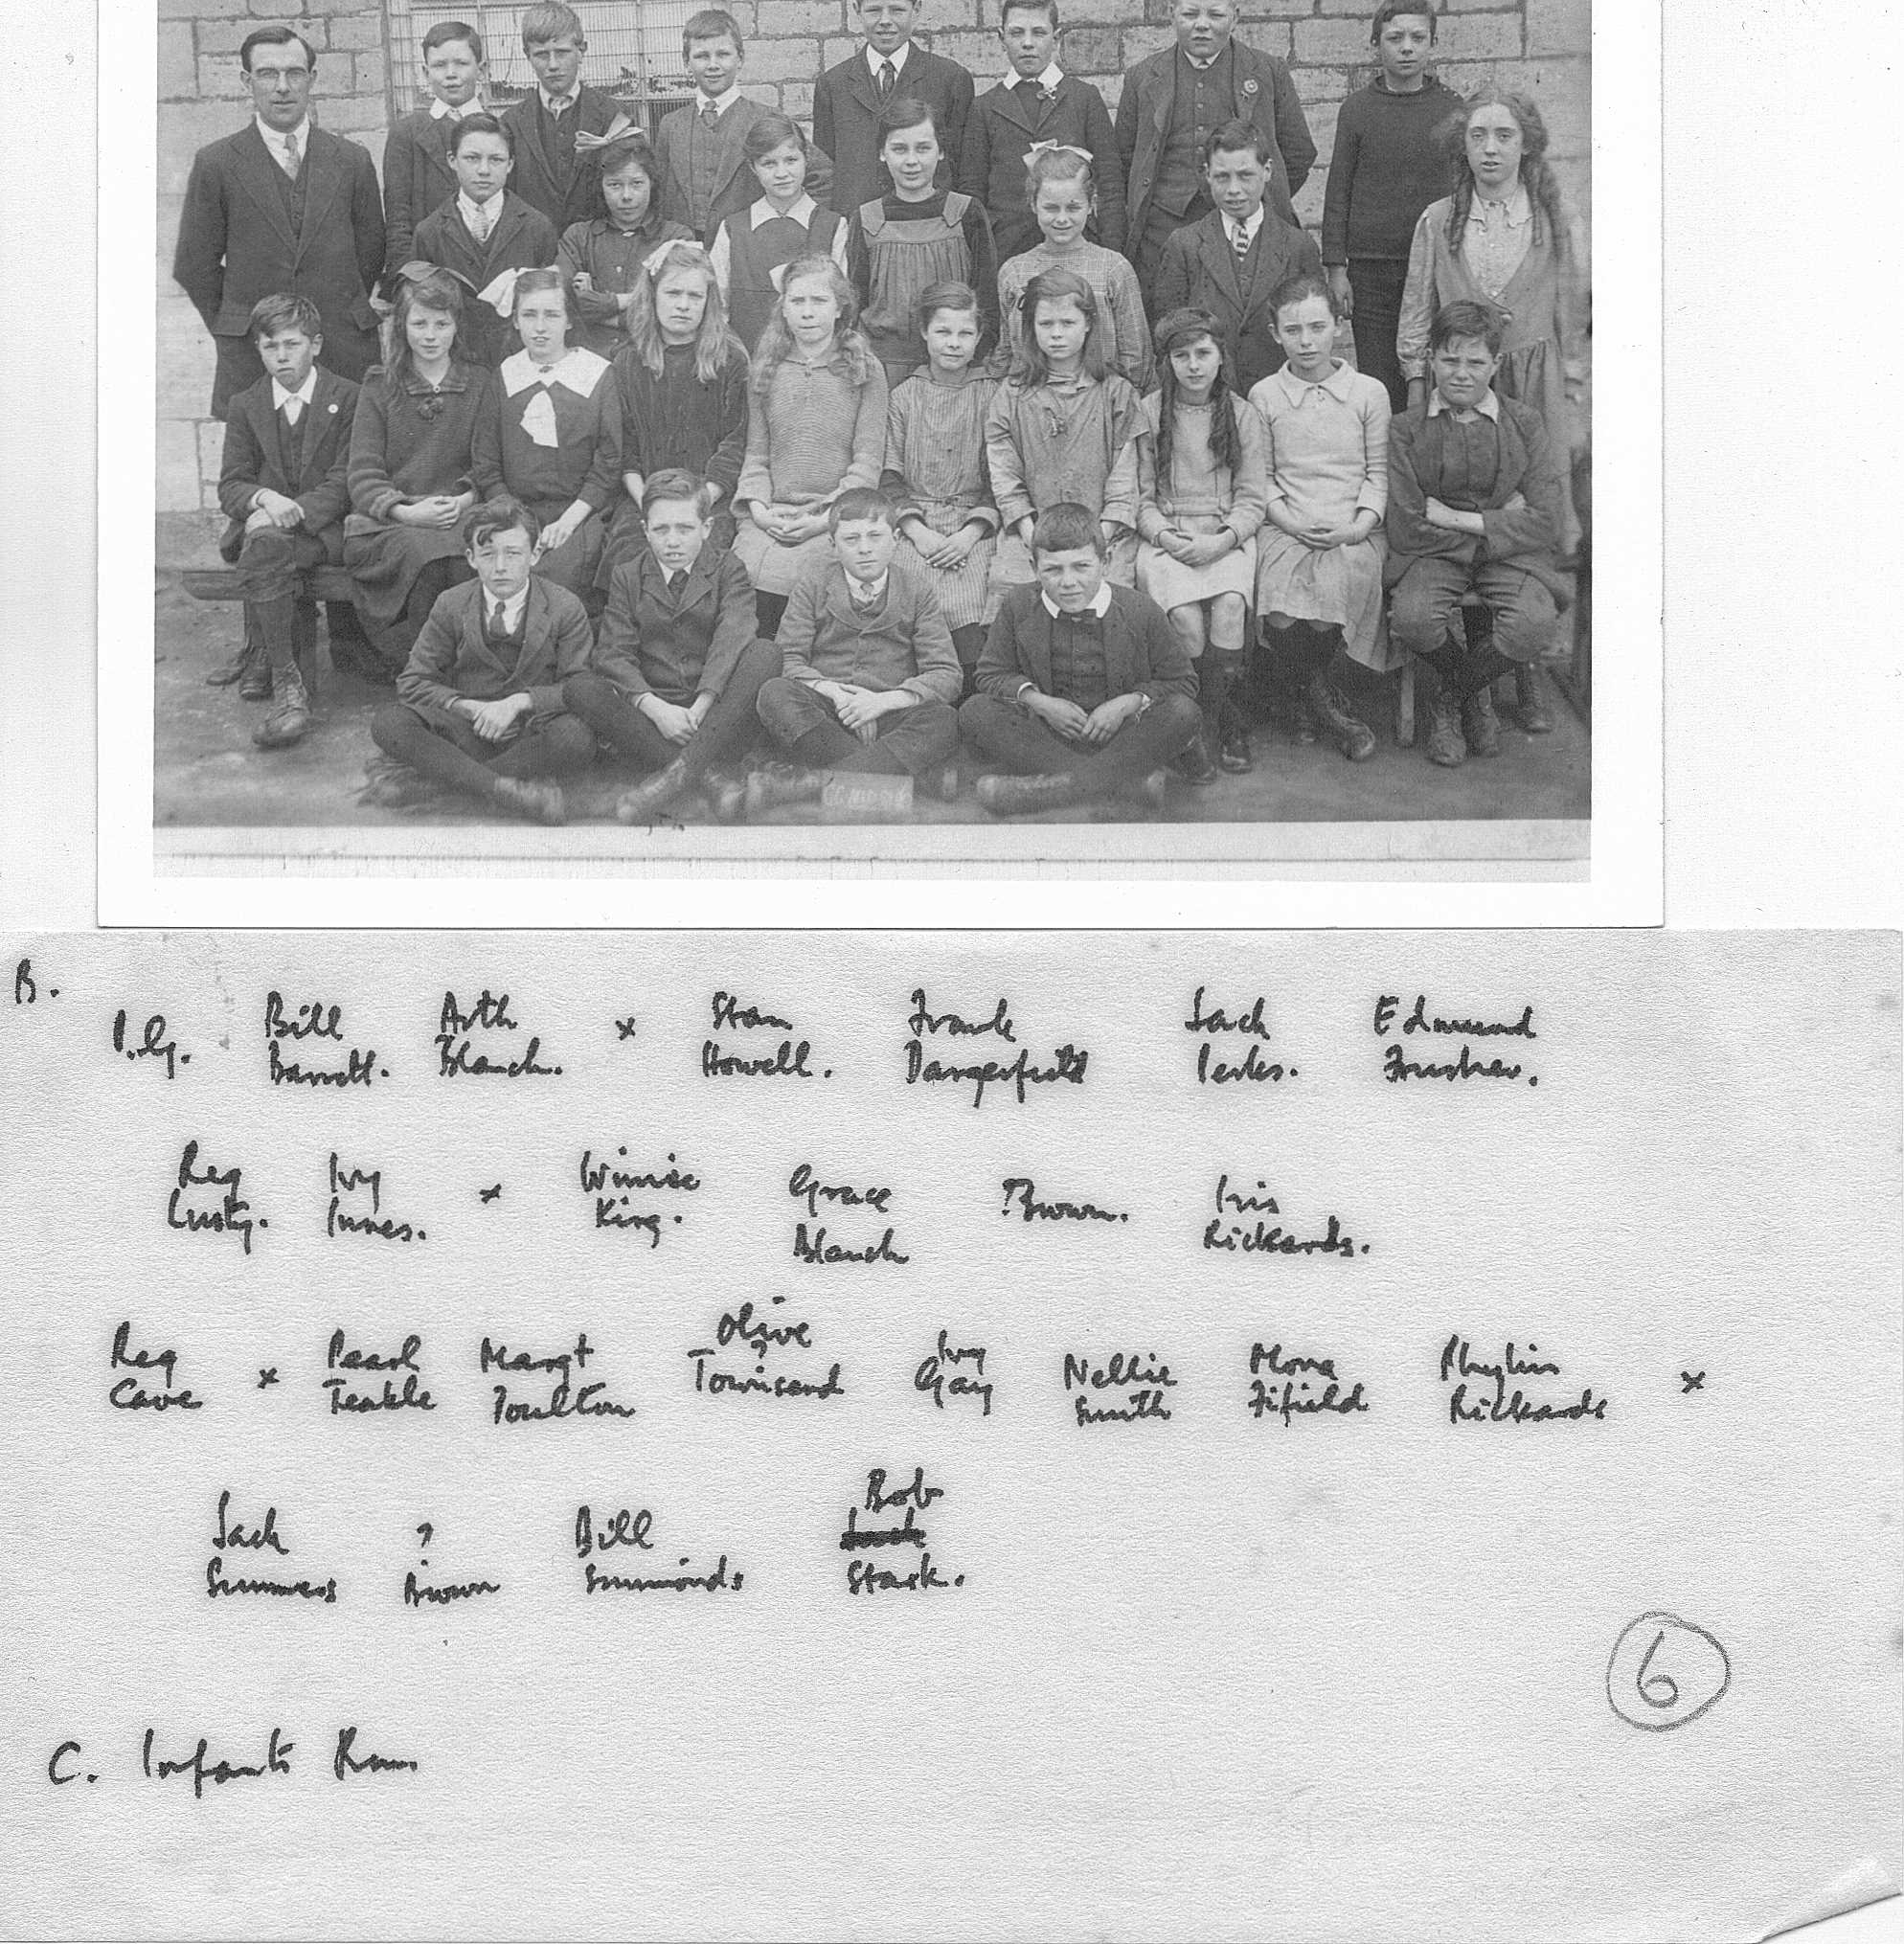 B.
P.G. Bill Arth x Stan Frank Jack Edmund
Barrett. Blanch. Howell. Dangerfield Perks.
Reg Ivy x Winnie Grace ? Brown. Iris
Lusty. Innes. King. Blanch Rickards.
Olive
Reg x Pearl Margt ? Ivy Nellie Mona Phyllis x
Cave Teakle Poulton Townsend Gay Smith Fifield Rickards
Bob
Jack ? Bill
Summers Brown Simmonds Stark.
6
C. Infants Room